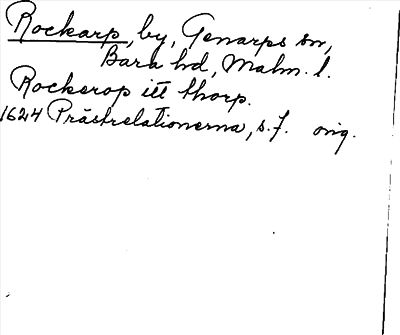 Rockarp, by, Genarps sn,
Bara hd, Malm. l.
Rockerop itt thorp.
1624 Prästrelationerna, s. 7. orig.